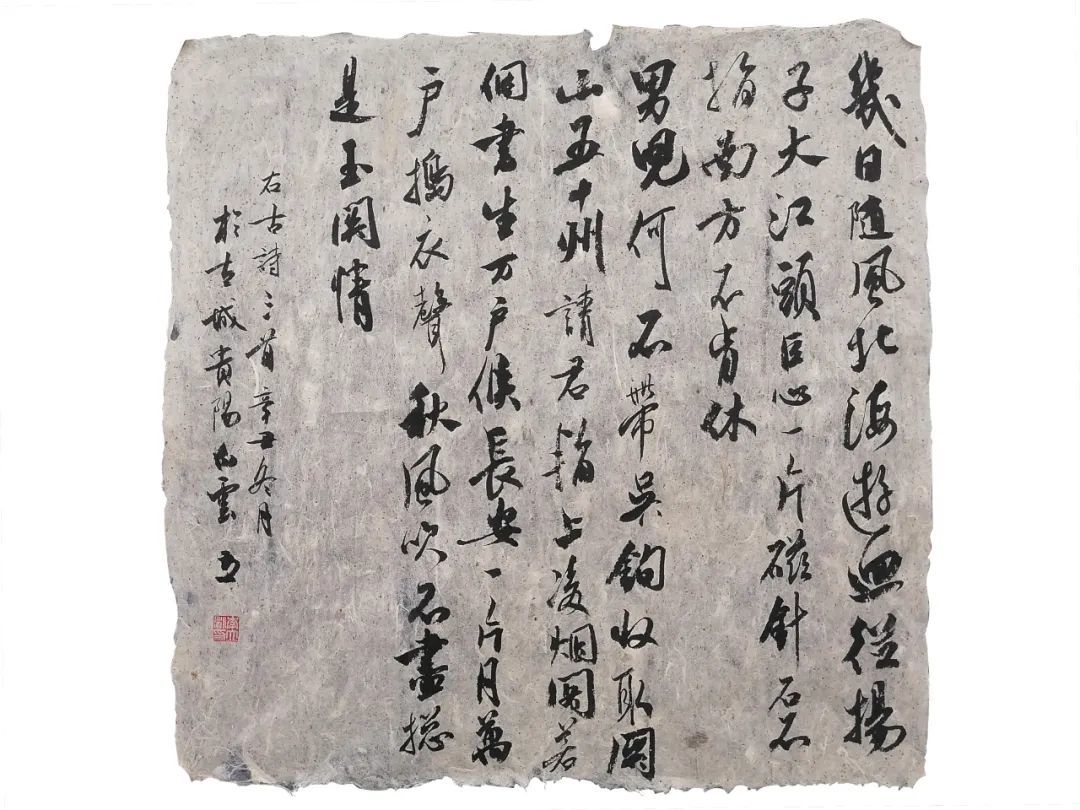 幾日随風北海遊廻從揚
子大江頭臣心一片磁針石不
指南方不肯休
男兒何不帶吳鉤收取関
山五十州請君暫上凌烟閣若
個書生万戶侯長安一片月萬
戶搗衣聲秋風吹不盡摠
是玉関情
右古詩三首辛丑冬月
於古城貴陽白雲